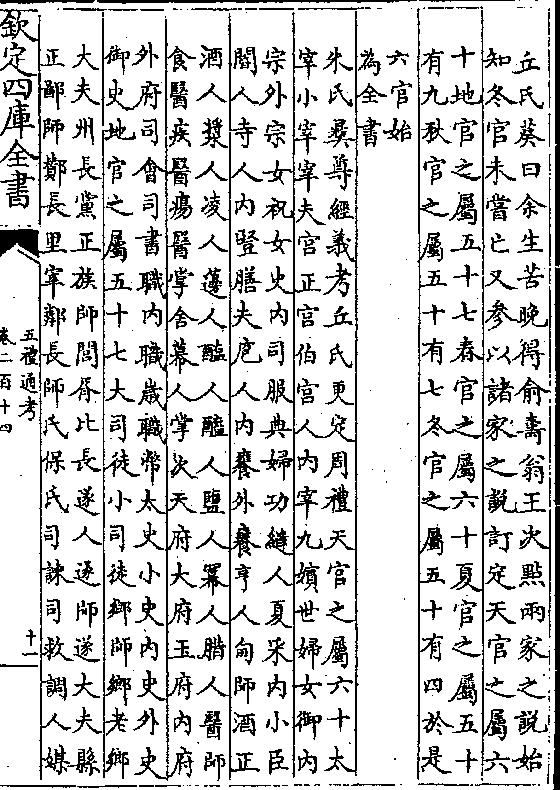 丘氏葵曰余生苦晚得俞壽翁王次點兩家之説始
知冬官未嘗亡又參以諸家之説訂定天官之屬六
十地官之屬五十七春官之屬六十夏官之屬五十
有九秋官之屬五十有七冬官之屬五十有四於是
六官始
為全書
朱氏彛尊經義考丘氏更定周禮天官之屬六十太
宰小宰宰夫宫正宫伯宫人内宰九嬪世婦女御内
宗外宗女祝女史内司服典婦功縫人夏采内小臣
閽人寺人内豎膳夫庖人内饔外饔亨人甸師酒正
酒人漿人凌人籩人醢人醯人鹽人冪人腊人醫師
食醫疾醫瘍醫掌舍幕人掌次天府大府玉府内府
外府司會司書職内職嵗職幣太史小史内史外史
御史地官之屬五十七大司徒小司徒鄉師鄉老鄉
大夫州長黨正族師閭胥比長遂人遂師遂大夫縣
正鄙師酇長里宰鄰長師氏保氏司諫司救調人媒
欽定四庫全書
五禮通考
卷二百十四
十一